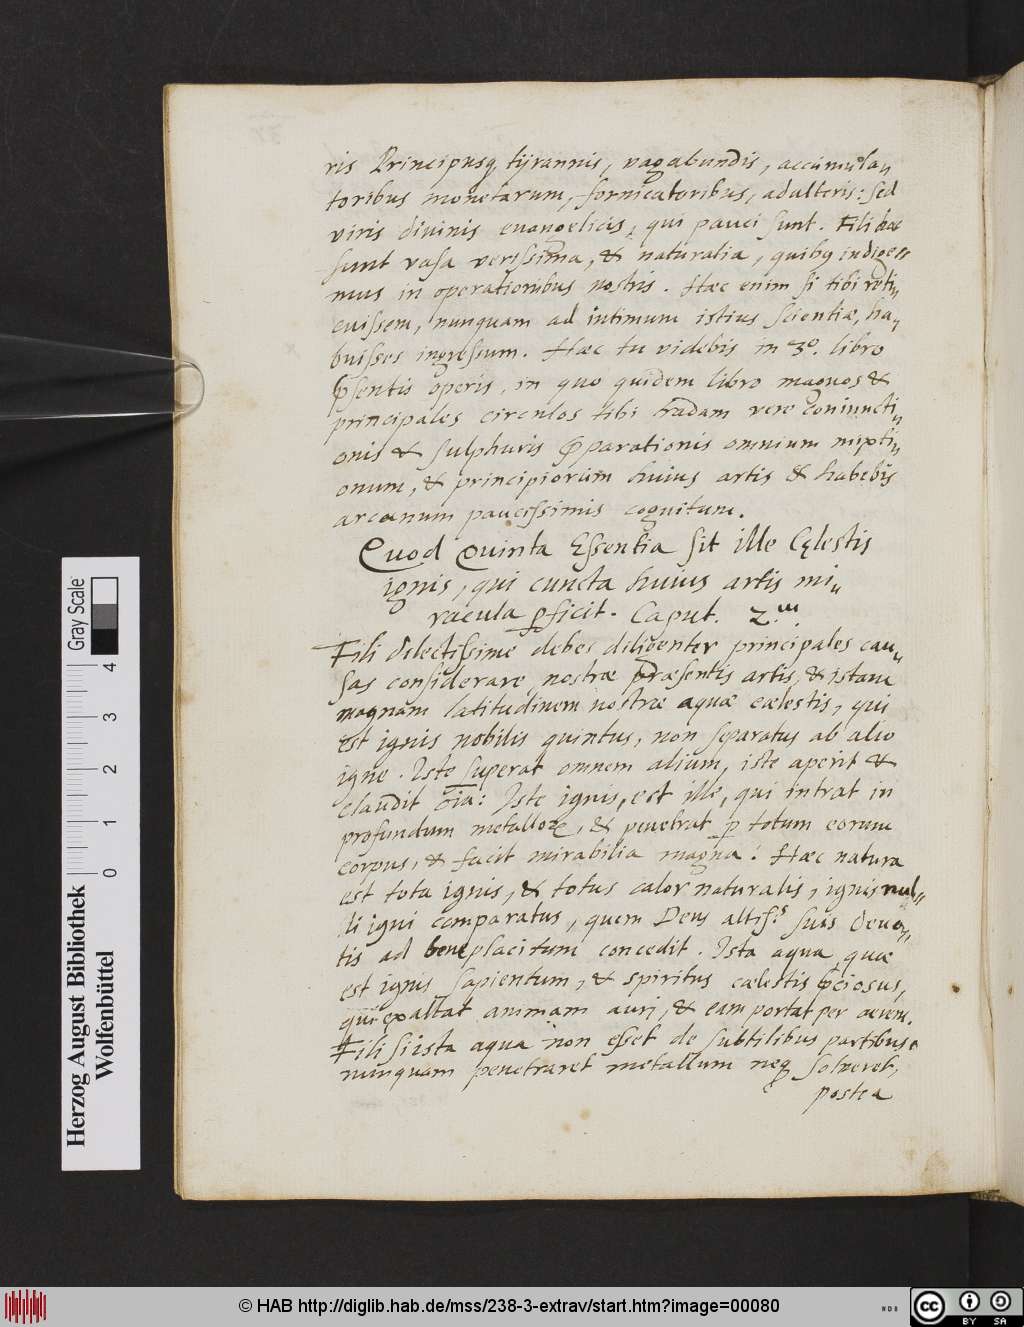 ris Principusq tÿrannis, vagabundis, accumula„
toribus monetarum, fornicatoribus, adulteris: sed
viris divinis evangelicis, qui pauci sunt. Fili hæc
sunt vasa verissima, & naturalia, quibq indige„
mus in operationibus nostris. Hæc enim si tibi reti„
cuissem, nunquam ad intimum istius scientiæ, ha„
buisses ingressum. Hæc tu videbis in 3º. libro
p̄sentis operis, in quo quidem libro magnos &
principales circulos tibi tradam vere coniuncti„
onis & sulphuris p̄parationis omnium mixti„
onum, & principiorum huius artis & habebis
arcanum paucissimis cognitum.
Quod Quinta Essentia sit ille Cęlestis
ignis, qui cuncta huius artis mi„
racula ꝑficit. Caput. 2.ᵘᵐ
Fili dilectissime debes diligenter principales cau„
sas considerare nostræ præsentis artis, & istam
magnam latitudinem nostræ aquæ cælestis, qui
est ignis nobilis quintus, non separatus ab alio
igne. Iste superat omnem alium, iste aperit &
claudit oīa: Iste ignis, est ille, qui intrat in
profundum metalloꝝ, & penetrat ꝑ totum eorum
corpus, & facit mirabilia magna: Hæc natura
est tota ignis, & totus calor naturalis, ignis nul„
li igni comparatus, quem Deus altis.º suis devo„
tis ad beneplacitum concedit. Ista aqua, quæ
est ignis sapientum, & spiritus cælestis p̄ciosus,
qui exaltat animam auri, & eam portat per aerem.
Fili si ista aqua non esset de subtilibus partibus
nunquam penetraret metallum neq solveret,
postea
Gray Scale
0 1 2 3 4
Herzog August Bibliothek
Wolfenbüttel
© HAB http://diglib.hab.de/mss/238-3-extrav/start.htm?image=00080
NDB
cc BY SA